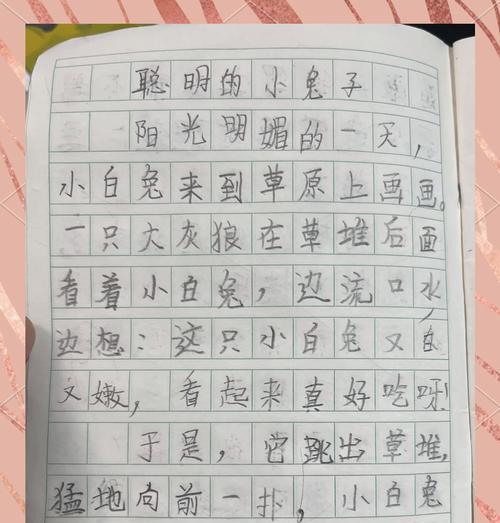 聪明的小兔子
阳光明媚的一天，
小白兔来到草原上画画。
一只大灰狼在草堆后面
看着小白兔，边流口水，
边想：这只小白兔又白
又嫩，看起来真好吃呀！
于是，它跳出草堆，
猛地向前一扑，小白兔